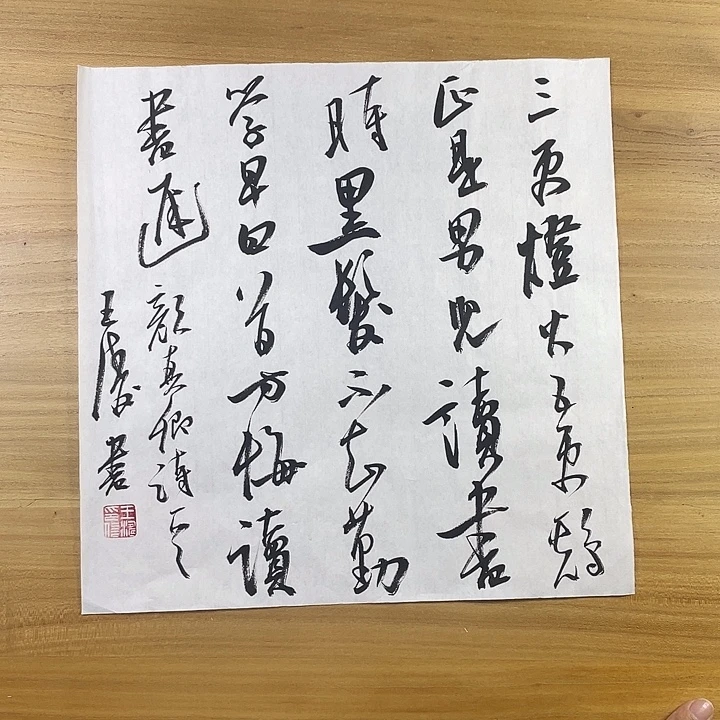 三更燈火五更鷄
正是男兒讀書
時黑髮不知勤
學早白首方悔讀
書遲
顏真卿詩
王 書